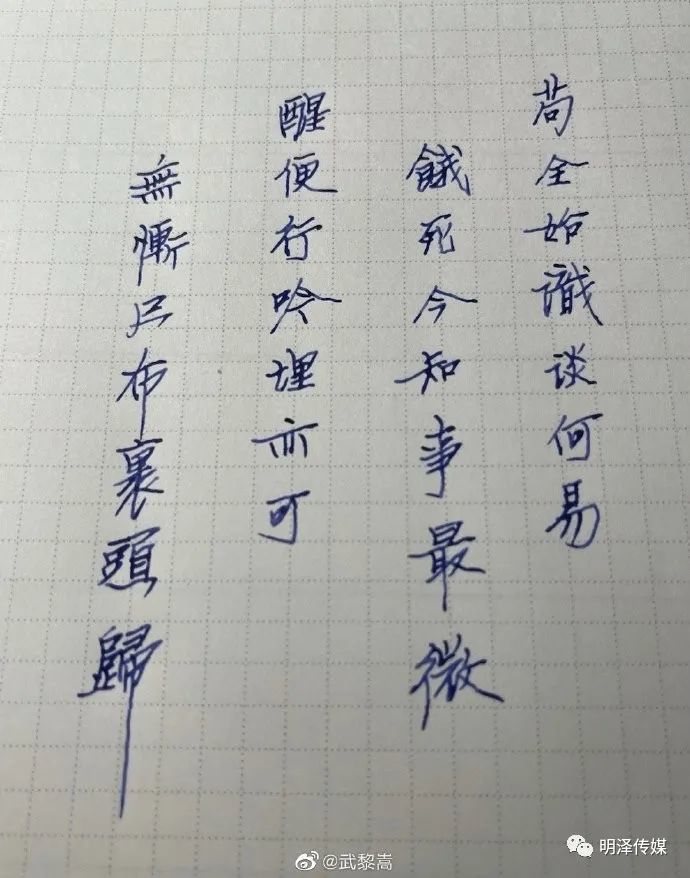 苟全始識谈何易
餓死今知事最微
醒便行吟埋亦可
無慚尺布裹頭歸
@武黎嵩
明泽传媒